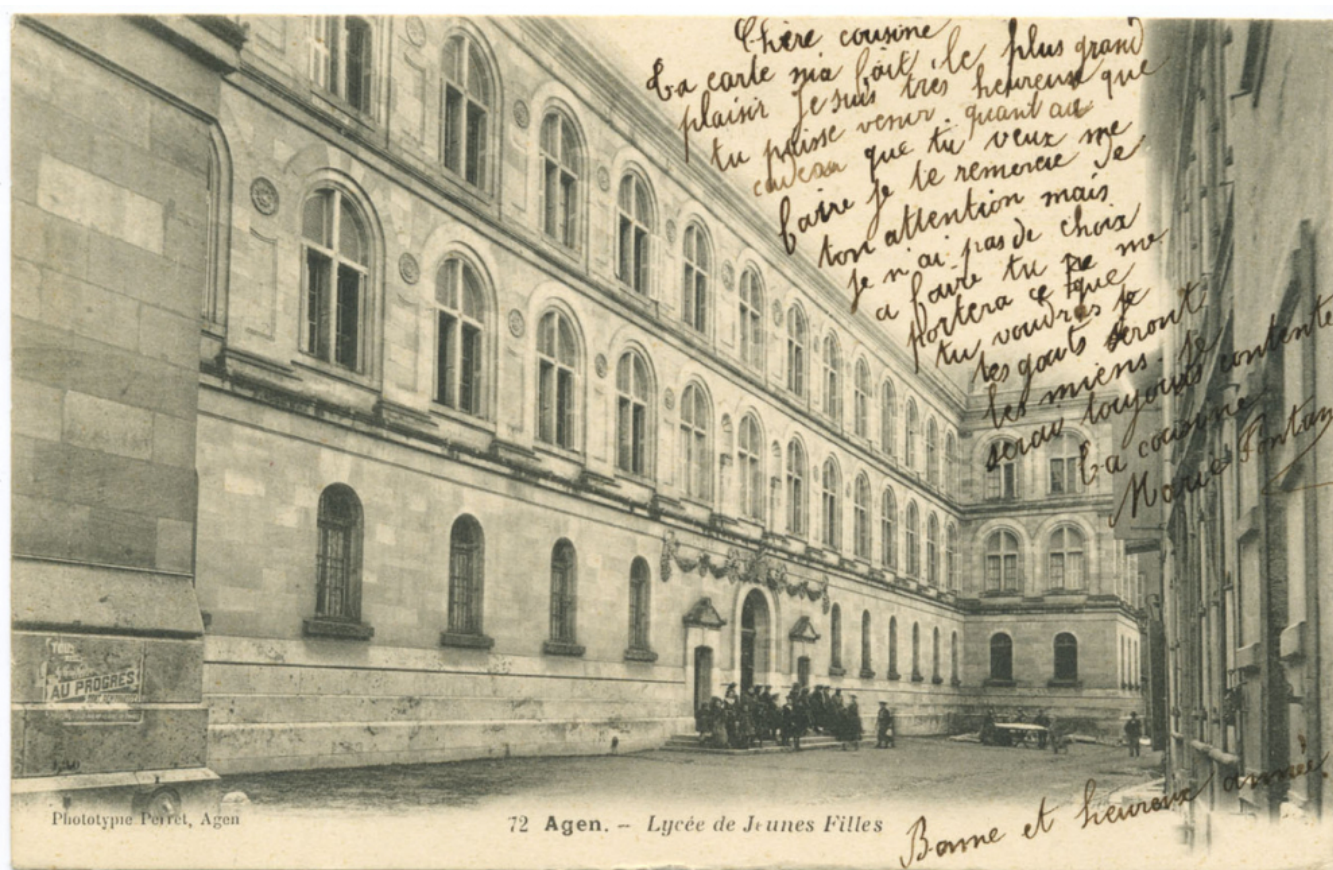 Chère cousine
Ta carte m'a fait le plus grand
plaisir Je suis très heureuse que
tu puisse venir. quant au
cadeau que tu veux me
faire je te remercie de
ton attention mais
je n'ai pas de choix
a faire tu me
portera ce que
tu voudras
tes gouts seront
les miens. Je
serai toujours contente
Ta cousine
Marie Fontan
Bonne et heureux année.
AU PROGRÈS
Phototypie Perret, Agen
72 Agen. — Lycée de Jeunes Filles